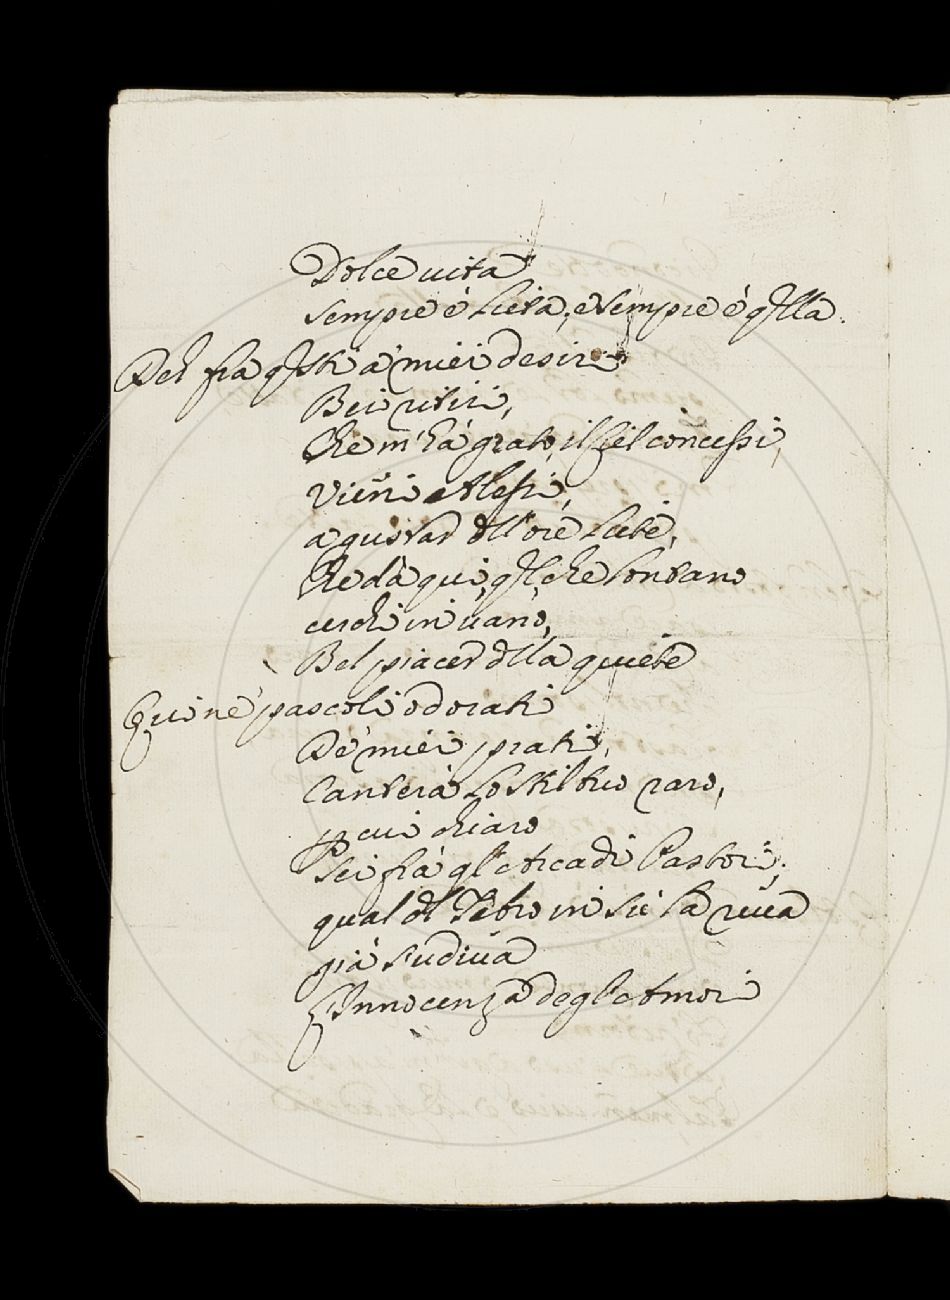 Dolce uita
sempre è lieta, e sempre è qlla.
Deh fra qsti a' miei desiri
Bei ritiri,
Che m'hà grato il Ciel concessi,
Vieni Alessi,
a gustar dll'ore liete,
Che dà qui, ql che lontano
cerchi in uano,
Bel piacer dlla quiete
Qui ne' pascoli odorati
De' miei prati,
Canterà lo stil tuo raro,
p cui chiaro
Sei frà gl'Arcadi Pastori,
qual dl Tebro in sù la riua
già s'udiua
L'Innocenza degl'Amori